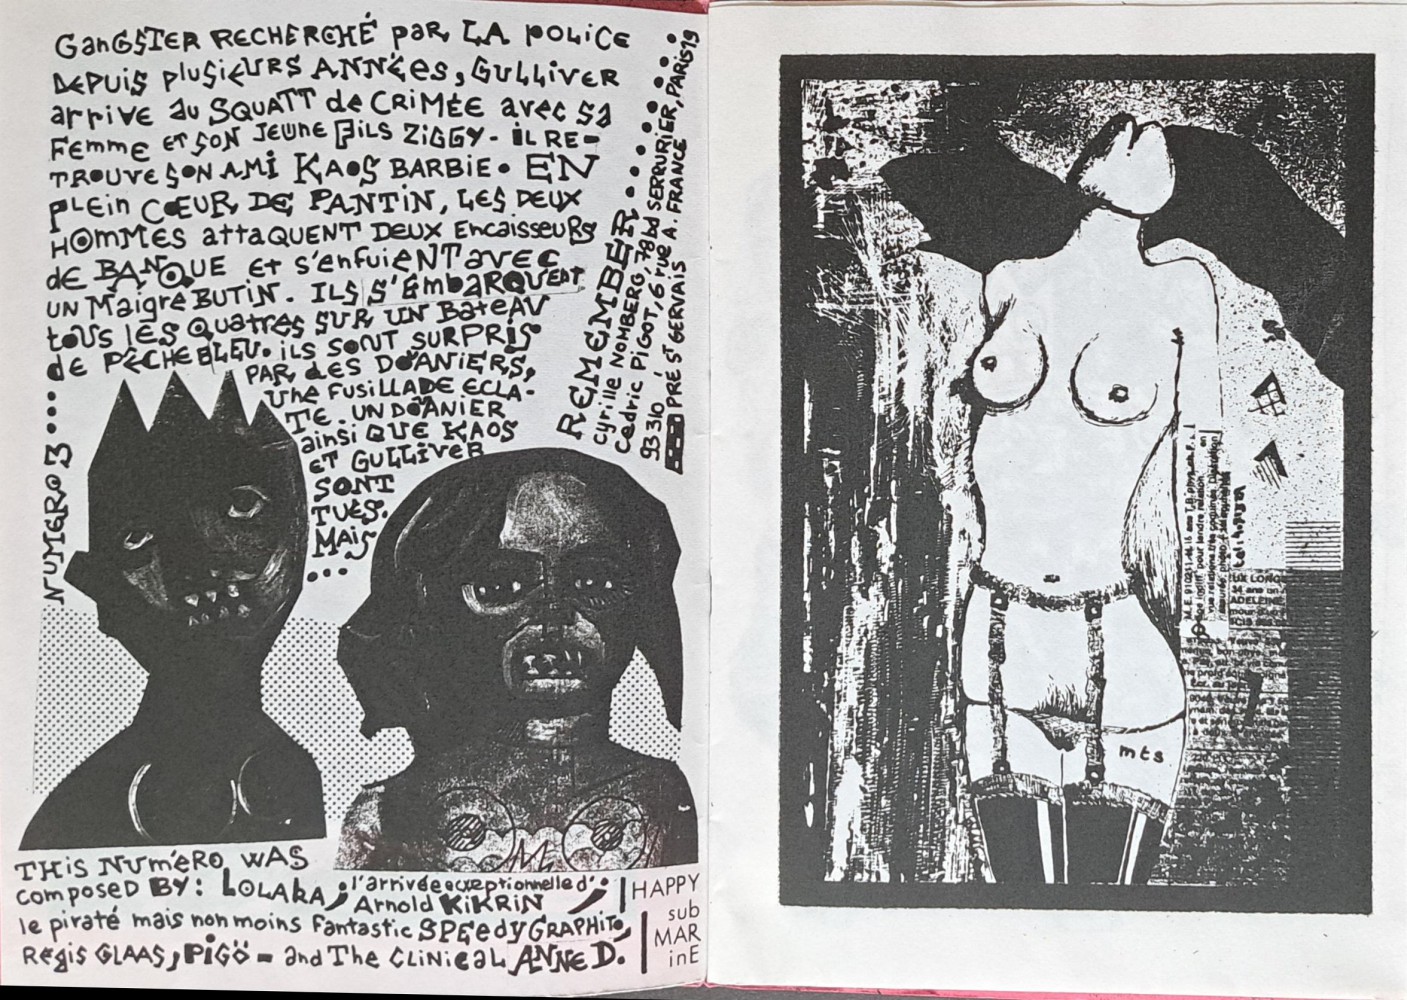 GanGSTER RECHERCHÉ paR LA poLiCE
DEPUiS plUSiEURS ANNÉes, GULLiVER
arrive au SQUATT de CRiMÉE avec sa
Femme et SON JEUNE Fils ZiGGY - iL RE-
TROUVE SON AMi KAOS BARBiE. EN
PLEin CŒUR DE PANTiN, LES DEUX
HOMMES attaQUENT DEUX EncaisseuRS
de BANQUE et s'enfuieNT avec
UN Maigre BUTiN. ILS S'EmbARQUENT
toUS LES QUatres SUR UN BateAU
de PÊCHE BLEU. iLS SONT SURPRiS
PAR DES DOANiERS,
Une FUSiLLADE ECLA-
TE. UN DOANiER
ainsi QUE KAOS
et GULLiVER
SONT
TUÉS.
MAiS
...
NUMERO 3...
REMEMBER
Cyrille NOMBERG, 78 bd SERRURIER, PARIS 19
Cédric PiGOT, 6 rue A. FRANCE
93310 PRÉ St GERVAIS
THiS NUméRO WAS
composED BY: LOLAkA; l'arrivée exceptionnelle d'
Arnold KiKRiN;
le piraté mais non moins Fantastic SPEedy GRAPHiTO,
Régis GLAAS, PiGÖ - and The CLiNiCAL ANNE D.
HAPPY
sub
MAR
inE
mts